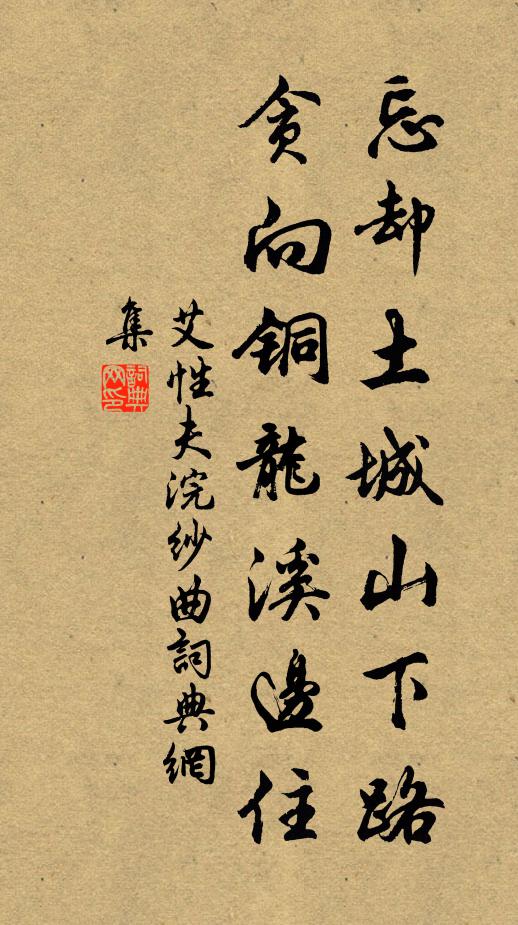 忘却土城山下路
贪向铜龍溪邊住
艾性夫浣紗曲詞典網
集
詞典網印